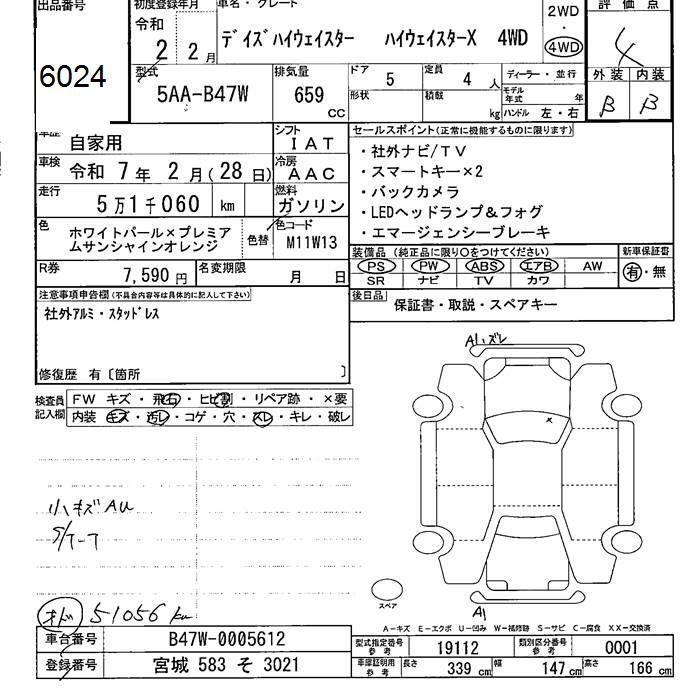 出品番号 初度登録年月 車名・グレード 2WD 評価点
令和
2 2月 デイズハイウェイスター ハイウェイスターX 4WD 4WD 4
6024
型式 排気量 ドア 定員 ディーラー・並行 外装 内装
5AA-B47W 659 CC 5 4 人 B B
形状 積載 kg モデル年式 年 ハンドル 左・右
車歴 自家用 シフト IAT セールスポイント(正常に機能するものに限ります)
車検 令和 7年 2月(28日) 冷房 AAC ・社外ナビ/TV
・スマートキー×2
走行 5万1千060 km 燃料 ガソリン ・バックカメラ
・LEDヘッドランプ&フォグ
色 ホワイトパール×プレミア 色替 色コード ・エマージェンシーブレーキ
ムサンシャインオレンジ M11W13
装備品 (純正品に限り○をつけてください) 新車保証書
R券 7,590円 名変期限 月 日 PS PW ABS エアB AW 有・無
SR ナビ TV カワ
注意事項申告欄(不具合内容等は具体的に記入して下さい) 後日品 保証書・取説・スペアキー
社外アルミ・スタッドレス
修復歴 有〔箇所 〕
A1ハズレ
検査員記入欄 FW キズ・飛石・ヒビ割・リペア跡・×要
内装 キズ・汚レ・コゲ・穴・スレ・キレ・破レ
×
小キズAU
オド 51056 km
スペア A1
A-キズ E-エクボ U-凹み W-補修跡 S-サビ C-腐食 XX-交換済
車台番号 B47W-0005612 型式指定番号 参考 19112 類別区分番号 参考 0001
登録番号 宮城 583 そ 3021 車庫証明用 参考 長さ 339 cm 幅 147 cm 高さ 166 cm